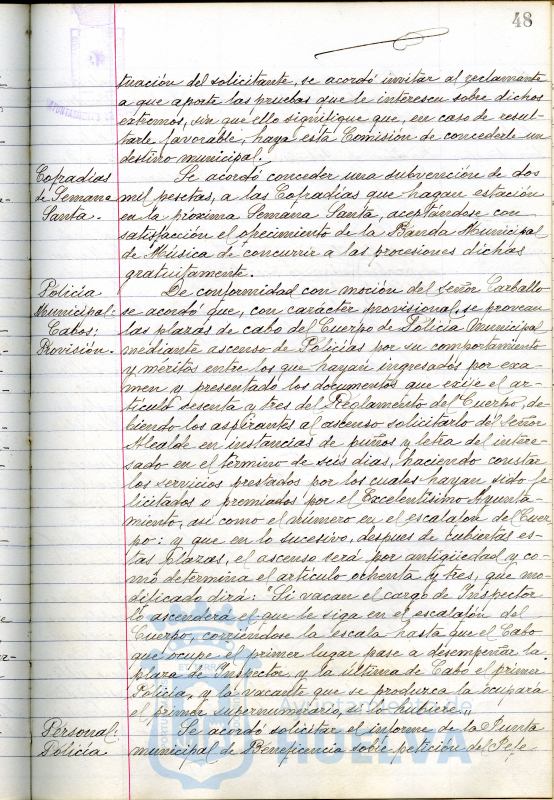 48
tuación del solicitante, se acordó invitar al reclamante
a que aporte las pruebas que le interesen sobre dichos
extremos, sin que ello signifique que, en caso de resul-
tarle favorable, haya esta Comisión de concederle un
destino municipal.
Cofradías de Semana Santa.
Se acordó conceder una subvención de dos
mil pesetas, a las Cofradías que hagan estación
en la próxima Semana Santa, aceptándose con
satisfacción el ofrecimiento de la Banda Municipal
de Música de concurrir a las procesiones dichas
gratuitamente.
Policía Municipal: Cabos; Provisión.
De conformidad con moción del Señor Carballo
se acordó que, con carácter provisional, se provean
las plazas de cabo del Cuerpo de Policía Municipal
mediante ascenso de Policías por su comportamiento
y méritos entre los que hayan ingresados por exa-
men y presentado los documentos que exije el ar-
tículo sesenta y tres del Reglamento del Cuerpo, de-
biendo los aspirantes al ascenso solicitarlo del Señor
Alcalde en instancias de puños y letra del intere-
sado en el término de seis dias, haciendo constar
los servicios prestados por los cuales hayan sido fe-
licitados o premiados por el Excelentísimo Ayunta-
miento, así como el número en el escalafon del Cuer-
po: y que en lo sucesivo, despues de cubiertas es-
tas plazas, el ascenso será por antigüedad y co-
mo determina el artículo ochenta y tres, que mo-
dificado dirá: "Si vacan el cargo de Inspector
lo ascenderá el que le siga en el escalafón del
Cuerpo, corriéndose la escala hasta que el Cabo
que ocupe el primer lugar pase a desempeñar la
plaza de Inspector, y la última de Cabo el primer
Policía, y la vacante que se produzca la ocupará
el primer supernumerario, si lo hubiere.
Personal: Policía
Se acordó solicitar el informe de la Junta
municipal de Beneficencia sobre petición del Jefe
HUELVA